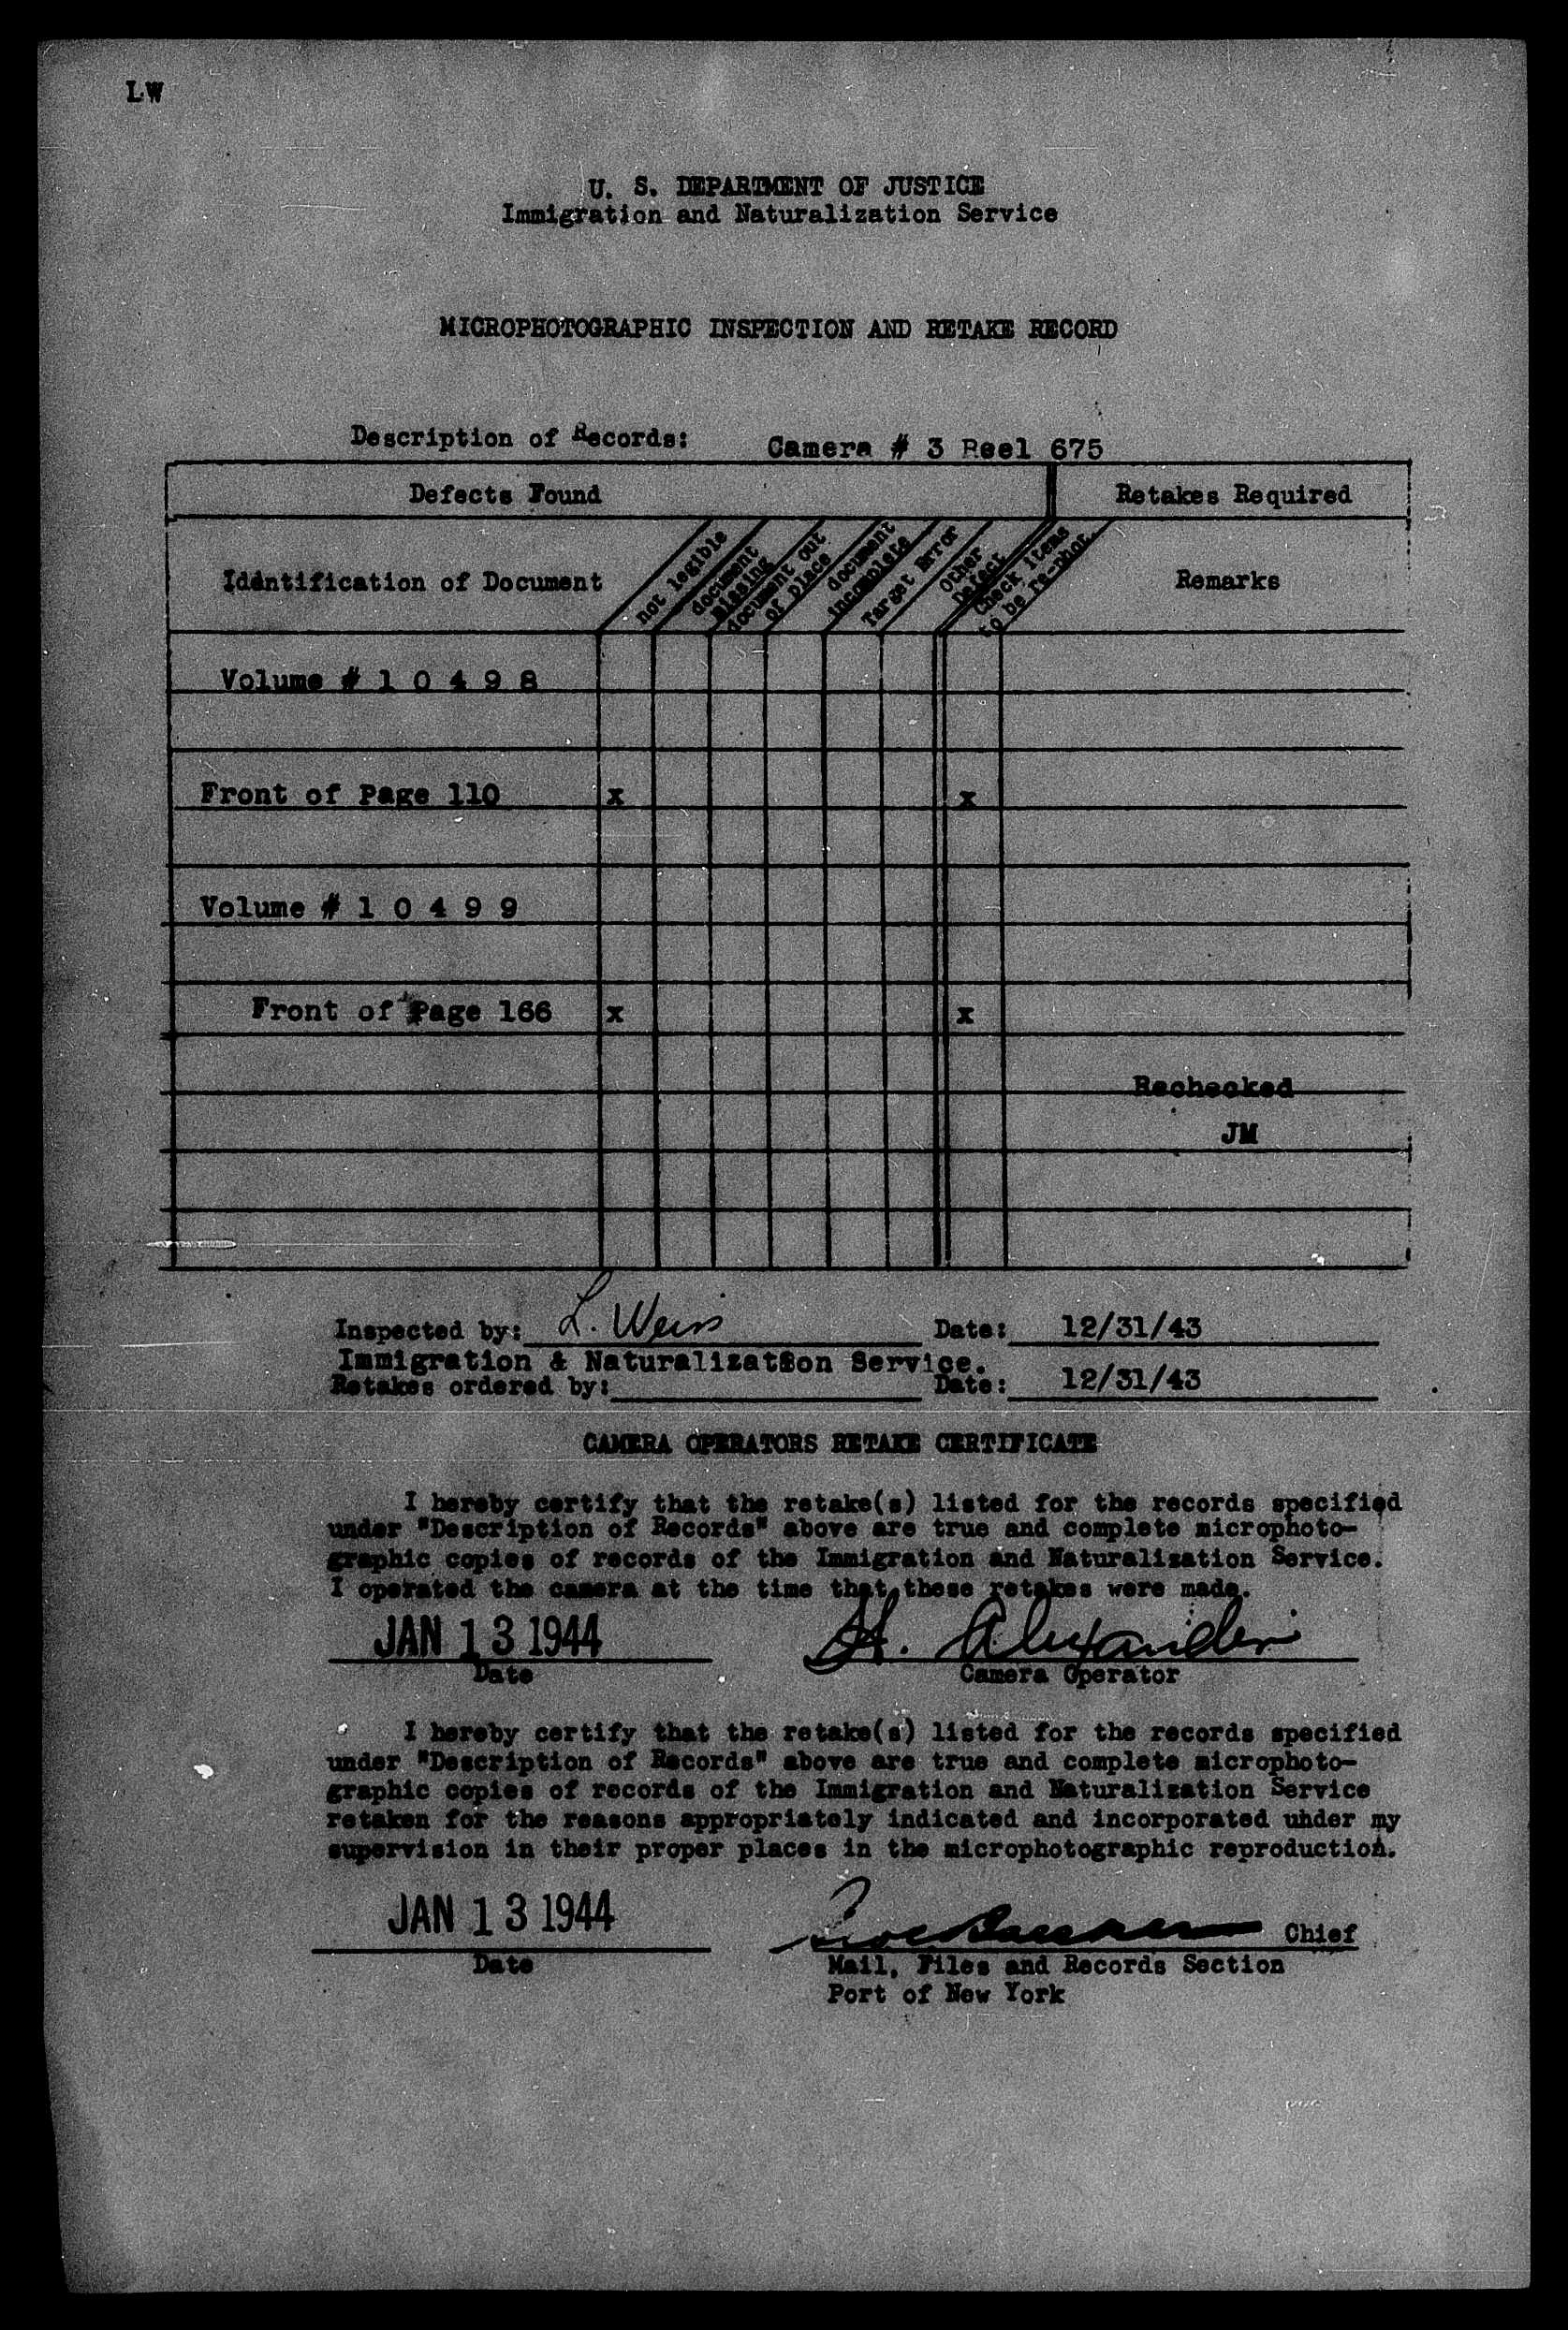 LW
U. S. DEPARTMENT OF JUSTICE
Immigration and Naturalization Service
MICROPHOTOGRAPHIC INSPECTION AND RETAKE RECORD
Description of Records: Camera # 3 Reel 675
Defects Found Retakes Required
Identification of Document
not legible
document missing
document out of place
document incomplete
Target Error
Other Defect
Check items to be re-phot.
Remarks
Volume # 1 0 4 9 8
Front of Page 110 x x
Volume # 1 0 4 9 9
Front of Page 166 x x
Rechecked
JM
Inspected by: L. Weiss Date: 12/31/43
Immigration & Naturalization Service.
Retakes ordered by: Date: 12/31/43
CAMERA OPERATORS RETAKE CERTIFICATE
I hereby certify that the retake(s) listed for the records specified
under "Description of Records" above are true and complete microphoto-
graphic copies of records of the Immigration and Naturalization Service.
I operated the camera at the time that these retakes were made.
JAN 13 1944 H. Alexander
Date Camera Operator
I hereby certify that the retake(s) listed for the records specified
under "Description of Records" above are true and complete microphoto-
graphic copies of records of the Immigration and Naturalization Service
retaken for the reasons appropriately indicated and incorporated uhder my
supervision in their proper places in the microphotographic reproduction.
JAN 13 1944 Chief
Date Mail, Files and Records Section
Port of New York